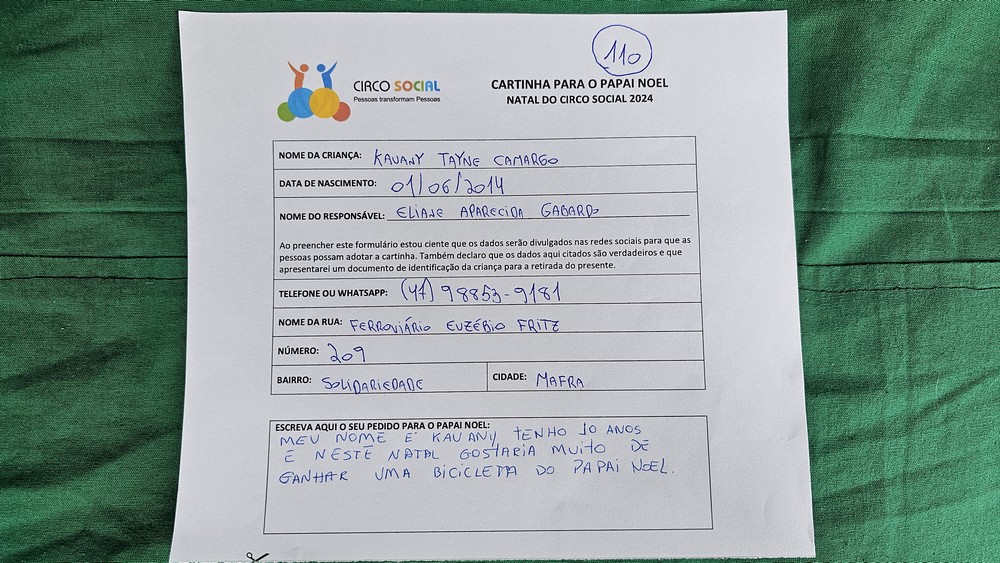 110
CIRCO SOCIAL
Pessoas transformam Pessoas
CARTINHA PARA O PAPAI NOEL
NATAL DO CIRCO SOCIAL 2024
NOME DA CRIANÇA: KAUANY TAYNE CAMARGO
DATA DE NASCIMENTO: 01/06/2014
NOME DO RESPONSÁVEL: ELIANE APARECIDA GABARDO
Ao preencher este formulário estou ciente que os dados serão divulgados nas redes sociais para que as
pessoas possam adotar a cartinha. Também declaro que os dados aqui citados são verdadeiros e que
apresentarei um documento de identificação da criança para a retirada do presente.
TELEFONE OU WHATSAPP: (47) 98853-9181
NOME DA RUA: FERROVIÁRIO EUZÉBIO FRITZ
NÚMERO: 209
BAIRRO: SOLIDARIEDADE CIDADE: MAFRA
ESCREVA AQUI O SEU PEDIDO PARA O PAPAI NOEL:
MEU NOME É KAUANY TENHO 10 ANOS
E NESTE NATAL GOSTARIA MUITO DE
GANHAR UMA BICICLETA DO PAPAI NOEL.